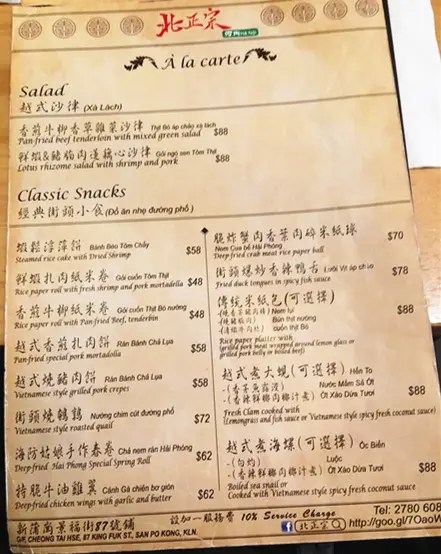 北正宗
河內
À la carte
Salad
越式沙律 (Xà Lách)
香煎牛柳香草雜菜沙律 Thịt Bò áp chảo xà lách
Pan-fried beef tenderloin with mixed green salad $88
鮮蝦&豬脂肉蓮藕心沙律 Gỏi ngó sen Tôm Thịt
Lotus rhizome salad with shrimp and pork $88
Classic Snacks
經典街頭小食 (Đồ ăn nhẹ đường phố)
蝦鬆淳萍餅 Bánh Bèo Tôm Chấy
Steamed rice cake with Dried Shrimp $58
鮮蝦扎肉紙米卷 Gỏi cuốn Tôm Thịt
Rice paper roll with fresh shrimp and pork mortadella $48
香煎牛柳紙米卷 Gỏi cuốn Thịt Bò nướng
Rice paper roll with Pan-fried Beef, tenderbin $48
越式香煎扎肉餅 Rán Bánh Chả Lụa
Pan-fried special pork mortadella $58
越式燒豬肉餅 Rán Bánh Chả Lụa
Vietnamese style grilled pork crepes $58
街頭燒鵪鶉 Nướng chim cút đường phố
Vietnamese style roasted quail $72
海防姑娘手作春卷 Chả nem rán Hải Phòng
Deep-fried Hai Phong Special Spring Roll $62
特脆牛油雞翼 Cánh Gà chiên bơ giòn
Deep-fried chicken wings with garlic and butter $62
脆炸蟹肉香葉肉碎米紙球
Nem Cua bể Hải Phòng
Deep-fried crab meat rice paper ball $70
街頭爆炒香辣鴨舌 Lưỡi Vịt áp chảo
Fried duck tongues in spicy fish sauce $78
傳統米紙包(可選擇)
-(燒香茅豬肉棒) Nem lụi
-(燒豬腩肉) Bún thịt nướng
-(清燉牛肉片) cuốn thịt Bò
$88
Rice paper platter with
(grilled pork meat wrapped around lemon grass or
grilled pork belly or boiled beef)
越式煮大蜆(可選擇) Hến To
-(香茅魚露浸) Nước Mắm Sả Ớt
-(香辣鮮椰肉椰汁煮) Ớt Xào Dừa Tươi $88
Fresh Clam cooked with
(Lemongrass and fish sauce or Vietnamese style spicy fresh coconut sauce)
越式煮海螺(可選擇) Ốc Biển
-(白灼) Luộc
-(香辣鮮椰肉椰汁煮) Ớt Xào Dừa Tươi $88
Boiled sea snail or
Cooked with Vietnamese style spicy fresh coconut sauce
設加一服務費 10% Service Charge
Tel: 2780 608
新蒲崗景福街87號鋪
G/F, CHEONG TAI HSE, 87 KING FUK ST, SAN PO KONG, KLN.
北正宗
http://goo.gl/7OaoW